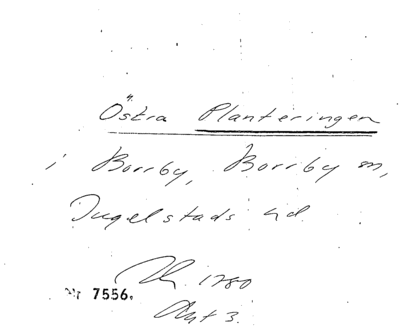 Östra Planteringen
i Borrby, Borrby sn,
Ingelstads hd
1780
Nr 7556.
Akt 3.